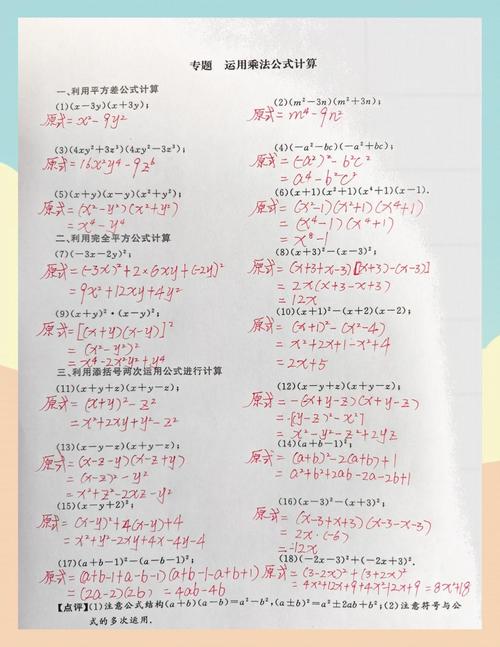 专题 运用乘法公式计算
一、利用平方差公式计算
(1)(x-3y)(x+3y);
原式=x²-9y²
(2)(m²-3n)(m²+3n);
原式=m⁴-9n²
(3)(4xy²+3z³)(4xy²-3z³);
原式=16x²y⁴-9z⁶
(4)(-a²-bc)(-a²+bc);
原式=(-a²)²-b²c²
=a⁴-b²c²
(5)(x+y)(x-y)(x²+y²);
原式=(x²-y²)(x²+y²)
=x⁴-y⁴
(6)(x+1)(x²+1)(x⁴+1)(x-1).
原式=(x²-1)(x²+1)(x⁴+1)
=(x⁴-1)(x⁴+1)
=x⁸-1
二、利用完全平方公式计算
(7)(-3x-2y)²;
原式=(-3x)²+2×6xy+(-2y)²
=9x²+12xy+4y²
(8)(x+3)²-(x-3)²;
原式=(x+3+x-3)[(x+3)-(x-3)]
=2x(x+3-x+3)
=12x
(9)(x+y)²·(x-y)²;
原式=[(x+y)(x-y)]²
=(x²-y²)²
=x⁴-2x²y²+y⁴
(10)(x+1)²-(x+2)(x-2);
原式=(x+1)²-(x²-4)
=x²+2x+1-x²+4
=2x+5
三、利用添括号两次运用公式进行计算
(11)(x+y+z)(x+y-z);
原式=(x+y)²-z²
=x²+2xy+y²-z²
(12)(x-y+z)(x+y-z);
原式=-(x+y-z)(x+y-z)
=-[(y-z)²-x²]
=x²-y²-z²+2yz
(13)(x-y-z)(x+y-z);
原式=(x-z-y)(x-z+y)
=(x-z)²-y²
=x²+z²-2xz-y²
(14)(a+b-1)²;
原式=(a+b)²-2(a+b)+1
=a²+b²+2ab-2a-2b+1
(15)(x-y+2)²;
原式=(x-y)²+4(x-y)+4
=x²+y²-2xy+4x-4y+4
(16)(x-3)²-(x+3)²;
原式=(x-3+x+3)(x-3-x-3)
=2x·(-6)
=-12x
(17)(a+b-1)²-(a-b-1)²;
原式=(a+b-1+a-b-1)(a+b-1-a+b+1)
=(2a-2)(2b)=4ab-4b
(18)(-2x-3)²+(-2x+3)².
原式=(3-2x)²+(3+2x)²
=4x²+12x+9+4x²-12x+9=8x²+18
【点评】(1)注意公式结构(a+b)(a-b)=a²-b²,(a±b)²=a²±2ab+b²;(2)注意符号与公
式的多次运用.